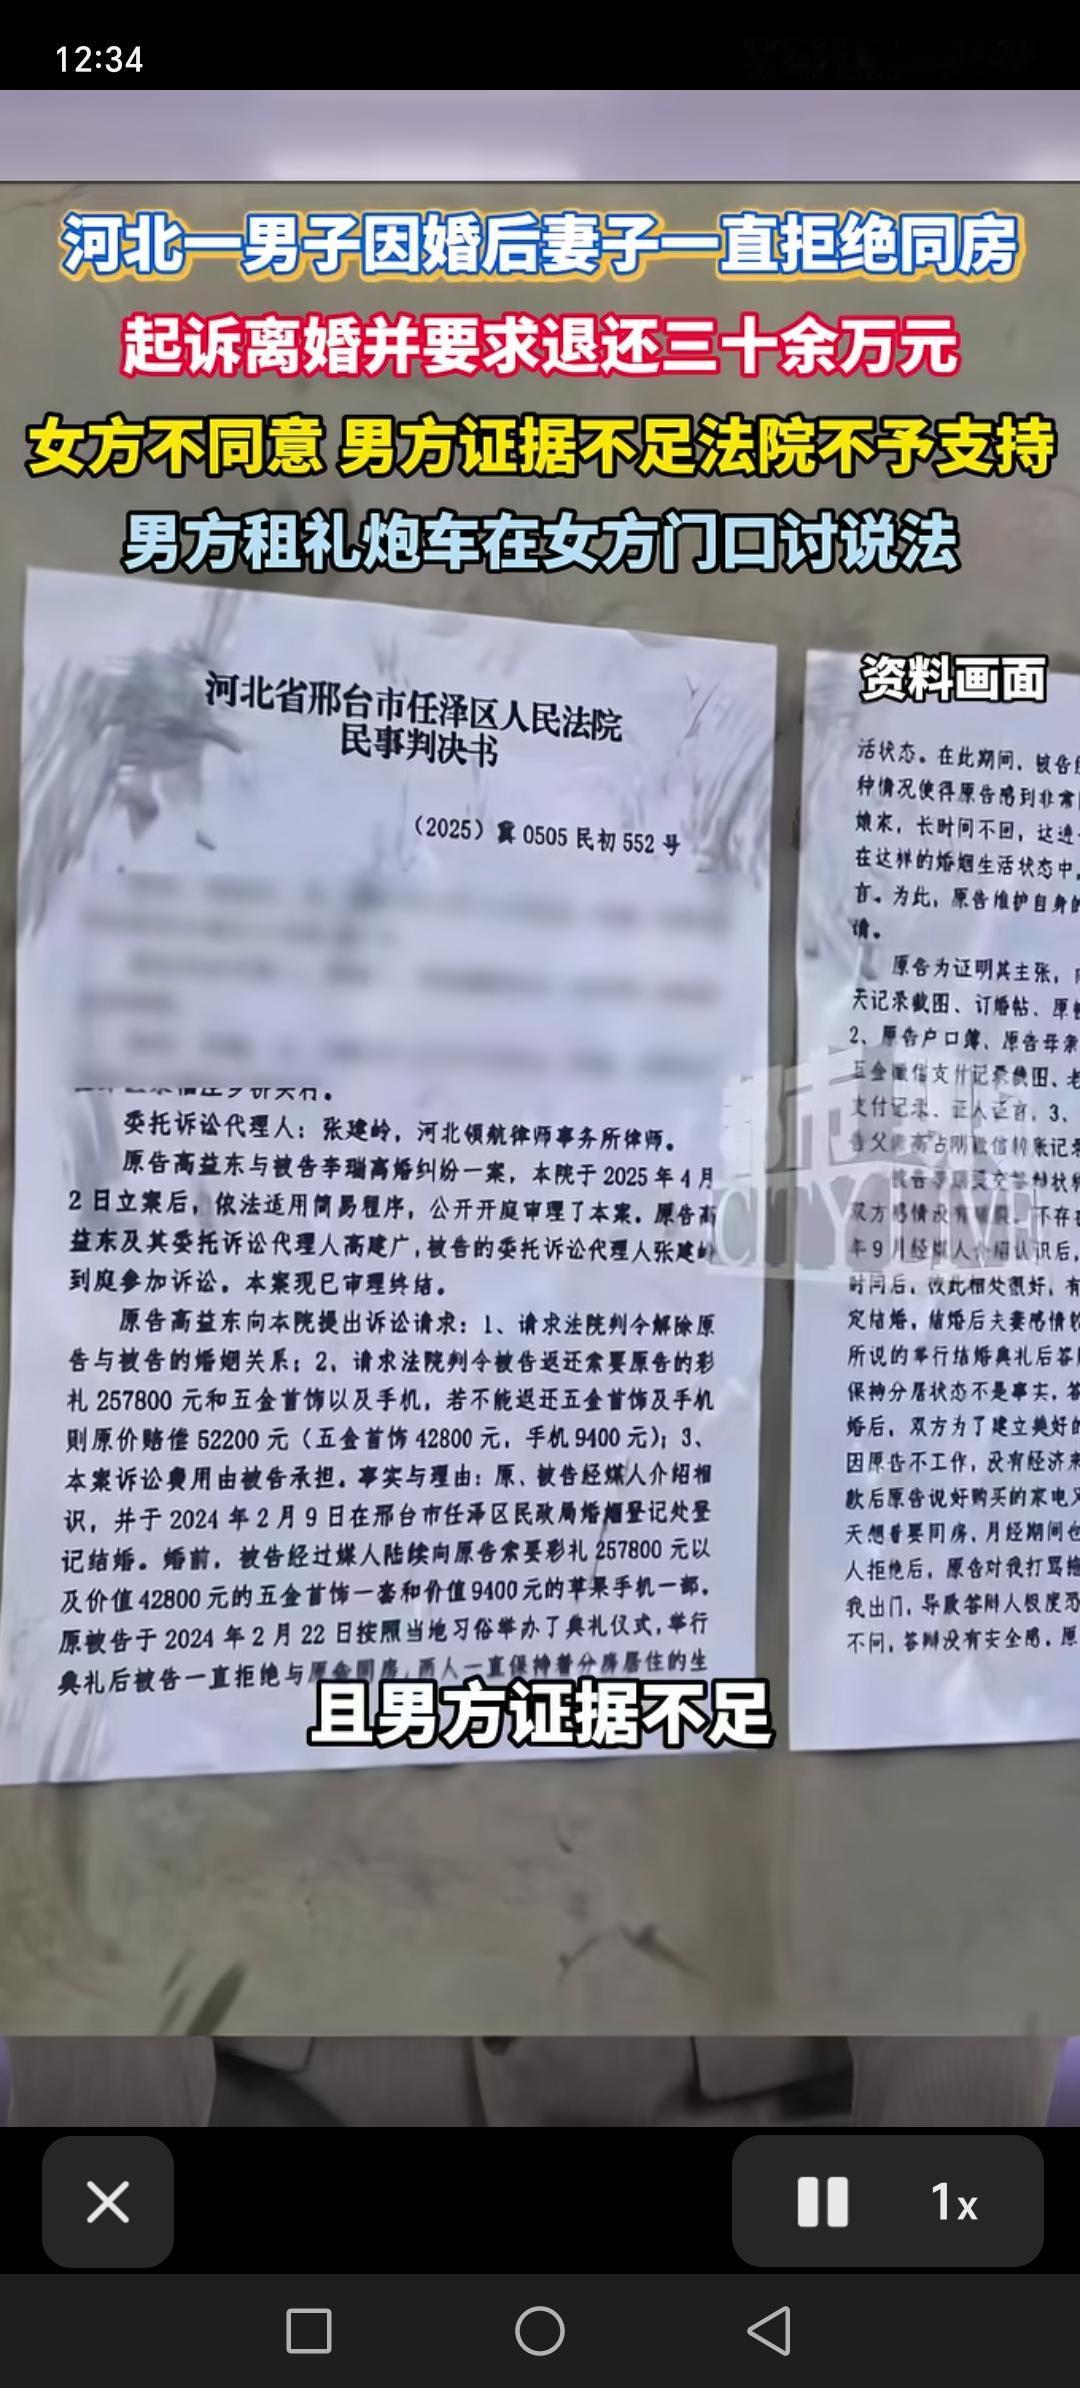 12:34
河北一男子因婚后妻子一直拒绝同房
起诉离婚并要求退还三十余万元
女方不同意 男方证据不足法院不予支持
男方租礼炮车在女方门口讨说法
资料画面
河北省邢台市任泽区人民法院
民事判决书
（2025）冀 0505 民初 552 号
委托诉讼代理人：张建岭，河北领航律师事务所律师。
原告高益东与被告李瑞离婚纠纷一案，本院于 2025 年 4 月
2 日立案后，依法适用简易程序，公开开庭审理了本案。原告高
益东及其委托诉讼代理人高建广，被告的委托诉讼代理人张建岭
到庭参加诉讼。本案现已审理终结。
原告高益东向本院提出诉讼请求：1、请求法院判令解除原
告与被告的婚姻关系；2、请求法院判令被告返还索要原告的彩
礼 257800 元和五金首饰以及手机，若不能返还五金首饰及手机
则原价赔偿 52200 元（五金首饰 42800 元，手机 9400 元）；3、
本案诉讼费用由被告承担。事实与理由：原、被告经媒人介绍相
识，并于 2024 年 2 月 9 日在邢台市任泽区民政局婚姻登记处登
记结婚。婚前，被告经过媒人陆续向原告索要彩礼 257800 元以
及价值 42800 元的五金首饰一套和价值 9400 元的苹果手机一部。
原被告于 2024 年 2 月 22 日按照当地习俗举办了典礼仪式，举行
典礼后被告一直拒绝与原告同房，两人一直保持着分房居住的生
活状态。在此期间，被告
种情况使得原告感到非常
娘家，长时间不回，这进
在这样的婚姻生活状态中，
言。为此，原告维护自身的
请。
原告为证明其主张，
天记录截图、订婚帖、原
2、原告户口簿、原告母亲
五金微信支付记录截图、
支付记录、证人证言。3、
双方感情没有破裂，不存在
年 9 月经媒人介绍认识后，
时间后，彼此相处很好，有
定结婚，结婚后夫妻感情
所说的举行结婚典礼后答
保持分居状态不是事实，答
婚后，双方为了建立美好的
因原告不工作，没有经济来
款后原告说好购买的家电又
天想着要同房，月经期间也
人拒绝后，原告对我打骂
我出门，导致答辩人极度恐
不问，答辩没有安全感，原
CITY LIVE
且男方证据不足
1x